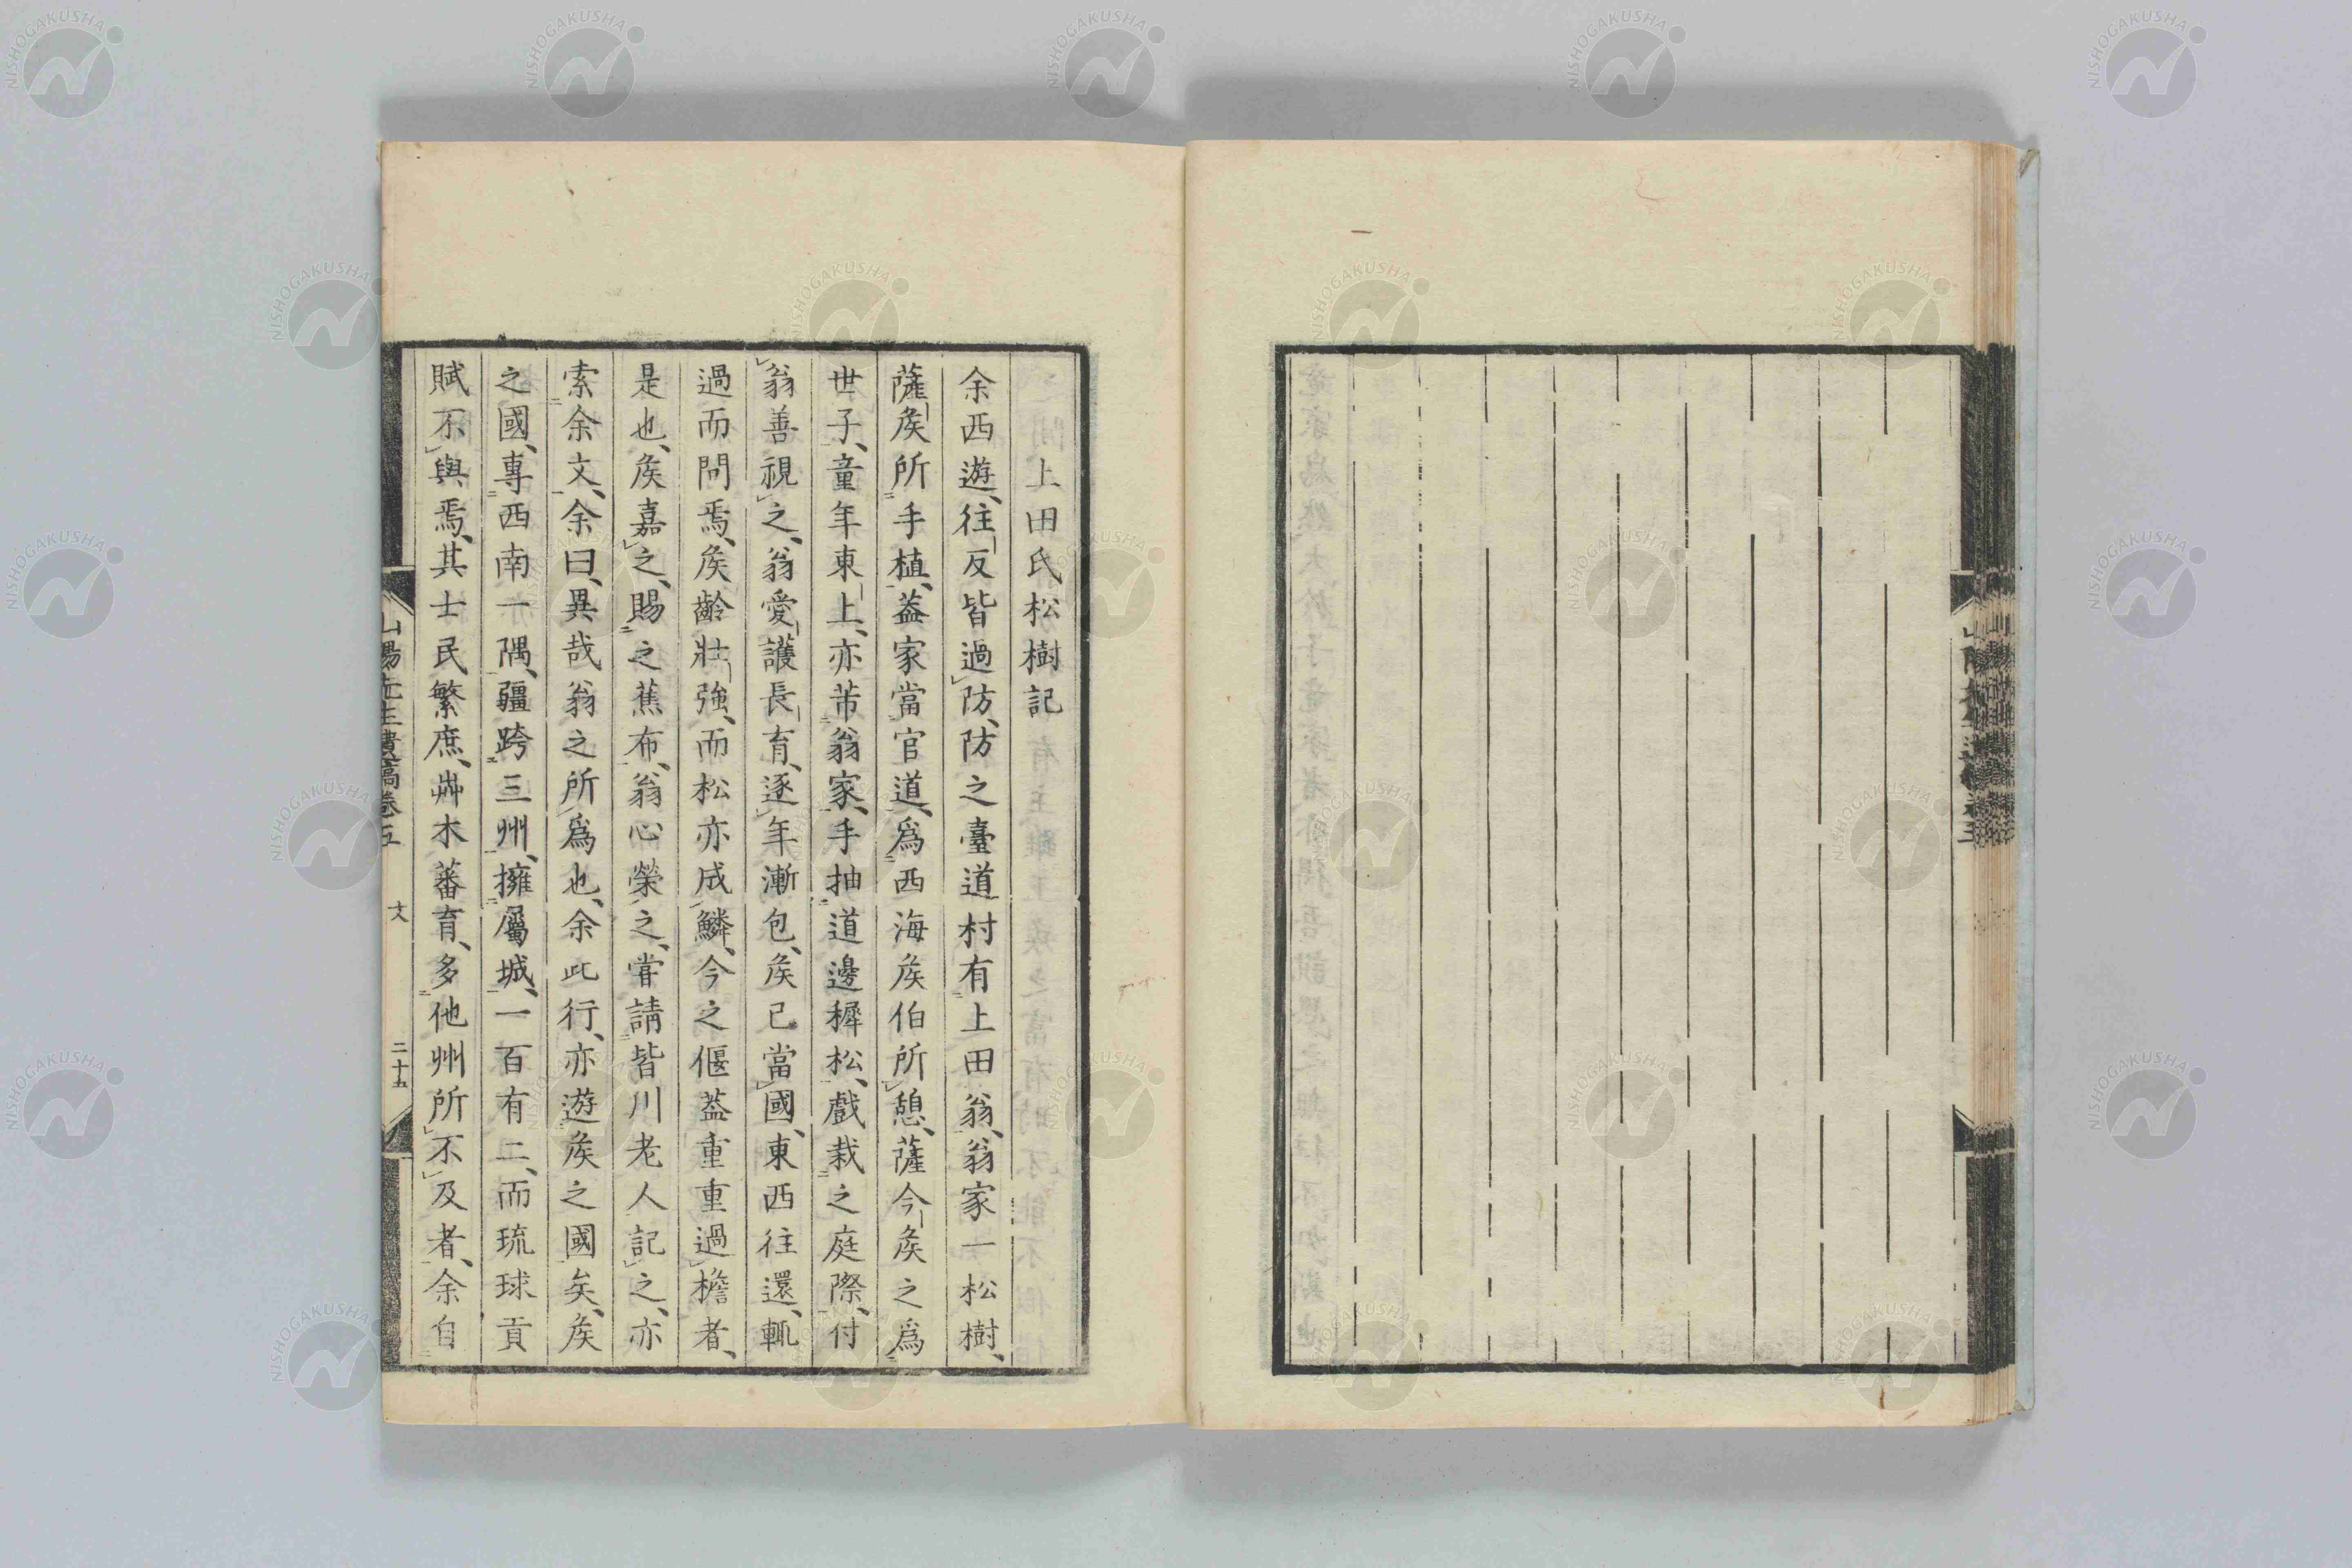 上田氏松樹記
余西遊、往反皆過防、防之臺道村有上田翁、翁家一松樹、
薩矦所手植、葢家當官道、爲西海矦伯所憩、薩今矦之爲
世子、童年東上、亦芾翁家、手抽道邊穉松、戲栽之庭際、付
翁善視之、翁愛護長育、逐年漸包、矦已當國、東西往還、輒
過而問焉、矦齡壯強、而松亦成鱗、今之偃葢重重過檐者、
是也、矦嘉之、賜之蕉布、翁心榮之、嘗請皆川老人記之、亦
索余文、余曰、異哉翁之所爲也、余此行、亦遊矦之國矣、矦
之國、專西南一隅、疆跨三州、擁屬城、一百有二、而琉球貢
賦不與焉、其士民繁庶、艸木蕃育、多他州所不及者、余自
山陽先生遺稿卷五 文 二十五
NISHOGAKUSHA